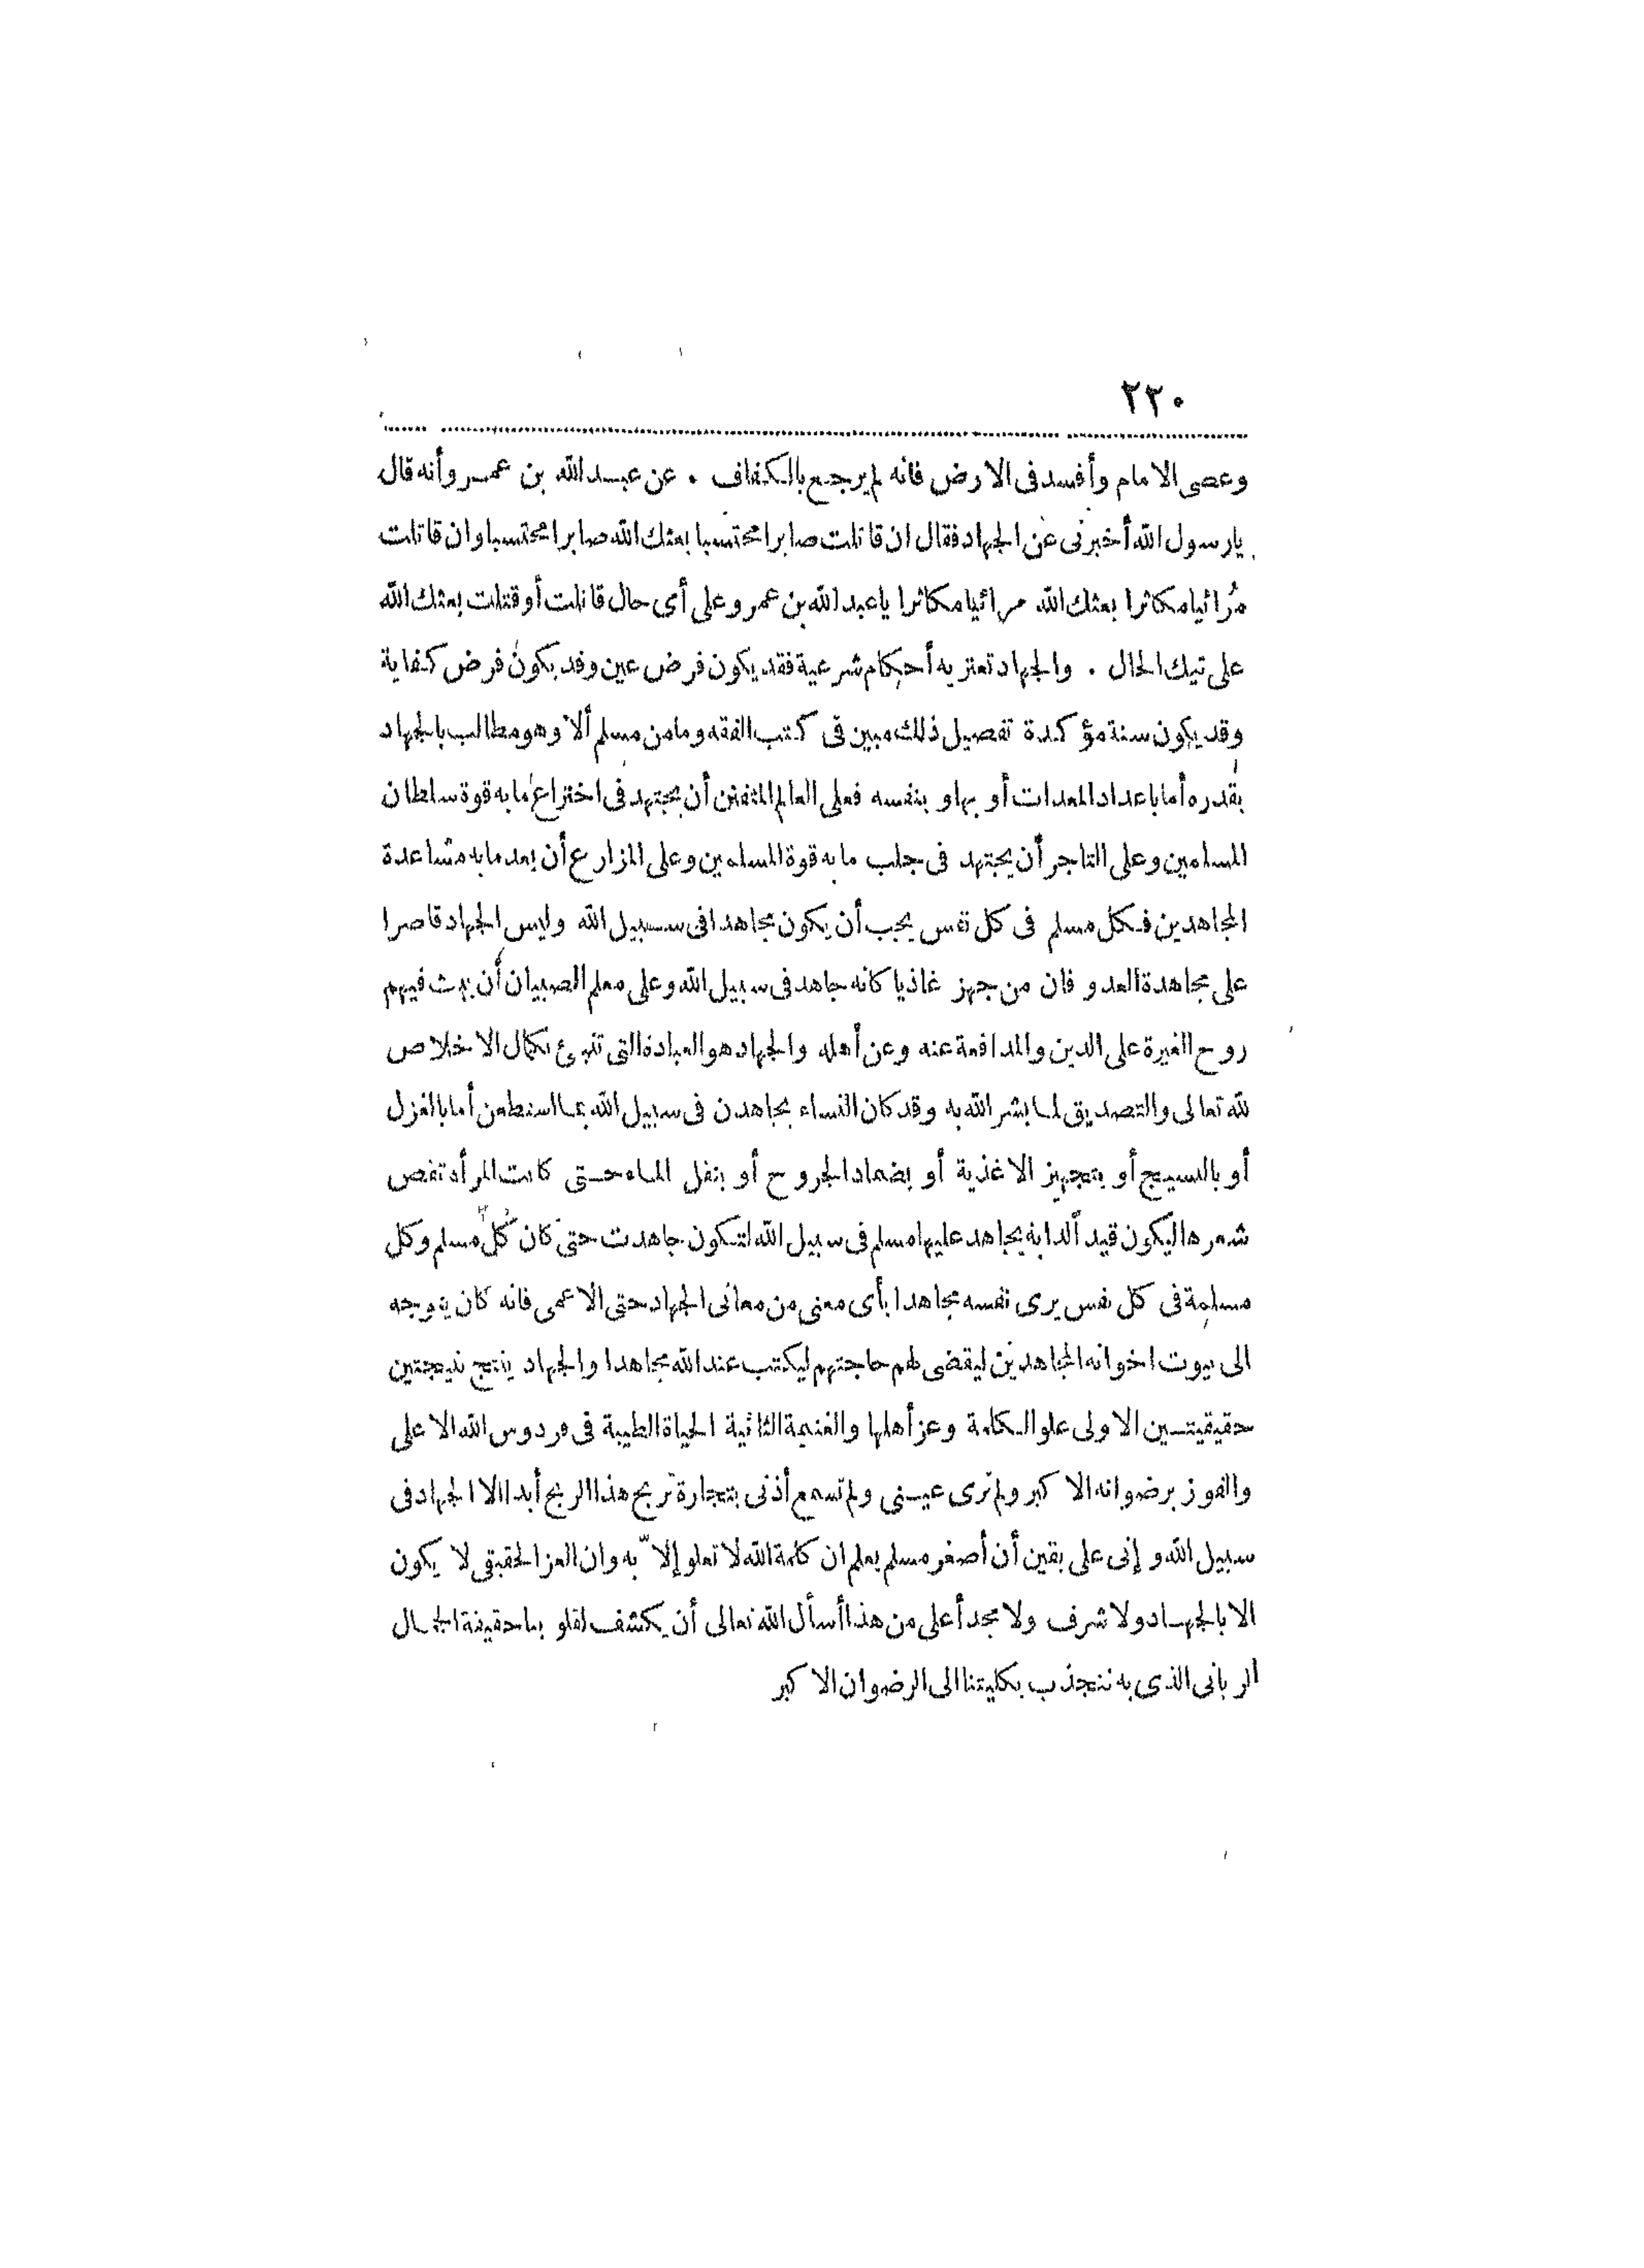 ٢٢٠
وعصى الامام وأفسد فى الارض فانه لم يرجع بالكفاف . عن عبد الله بن عمرو أنه قال
يارسول الله أخبرنى عن الجهاد فقال ان قاتلت صابرا محتسبا بعثك الله صابرا محتسبا وان قاتلت
مُرائيا مكاثرا بعثك الله مرائيا مكاثرا ياعبد الله بن عمرو على أى حال قاتلت أو قتلت بعثك الله
على تيك الحال . والجهاد تعتريه أحكام شرعية فقد يكون فرض عين وقد يكون فرض كفاية
وقد يكون سنة مؤكدة تفصيل ذلك مبين فى كتب الفقه وما من مسلم ألا وهو مطالب بالجهاد
بقدره أما باعداد المعدات أو بها و بنفسه فعلى العالم المتفنن أن يجتهد فى اختراع ما به قوة سلطان
المسلمين وعلى التاجر أن يجتهد فى جلب ما به قوة المسلمين وعلى المزارع أن يعد ما به مساعدة
المجاهدين فكل مسلم فى كل نفس يجب أن يكون مجاهدا فى سبيل الله وليس الجهاد قاصرا
على مجاهدة العدو فان من جهز غاذيا كانه جاهد فى سبيل الله وعلى معلم الصبيان أن يبث فيهم
روح الغيرة على الدين والمدافعة عنه وعن أهله والجهاد هو العبادة التى تنبئ بكمال الاخلاص
لله تعالى والتصديق لما بشر الله به وقد كان النساء يجاهدن فى سبيل الله بما استطعن أما بالغزل
أو بالنسيج أو بتجهيز الاغذية أو بضماد الجروح أو بنقل الماء حتى كانت المرأة تقص
شعرها ليكون قيد ألدابة يجاهد عليها مسلم فى سبيل الله لتكون جاهدت حتى كان كُل مسلم وكل
مسلمة فى كل نفس يرى نفسه مجاهدا بأى معنى من معانى الجهاد حتى الاعمى فانه كان يتوجه
الى بيوت اخوانه المجاهدين ليقضى لهم حاجتهم ليكتب عند الله مجاهدا والجهاد ينتج نتيجتين
حقيقيتين الاولى علو الكلمة وعز أهلها والغنيمة الثانية الحياة الطيبة فى فردوس الله الاعلى
والفوز برضوانه الاكبر ولم ترى عينى ولم تسمع أذنى بتجارة تربح هذا الربح أبدا الا الجهاد فى
سبيل الله و إنى على يقين أن أصغر مسلم يعلم ان كلمة الله لا تعلو إلاّ به وان العز الحقيقى لا يكون
الا بالجهاد ولا شرف ولا مجد أعلى من هذا أسأل الله تعالى أن يكشف لقلوبنا حقيقة الجمال
الربانى الذى به ننجذب بكليتنا الى الرضوان الاكبر